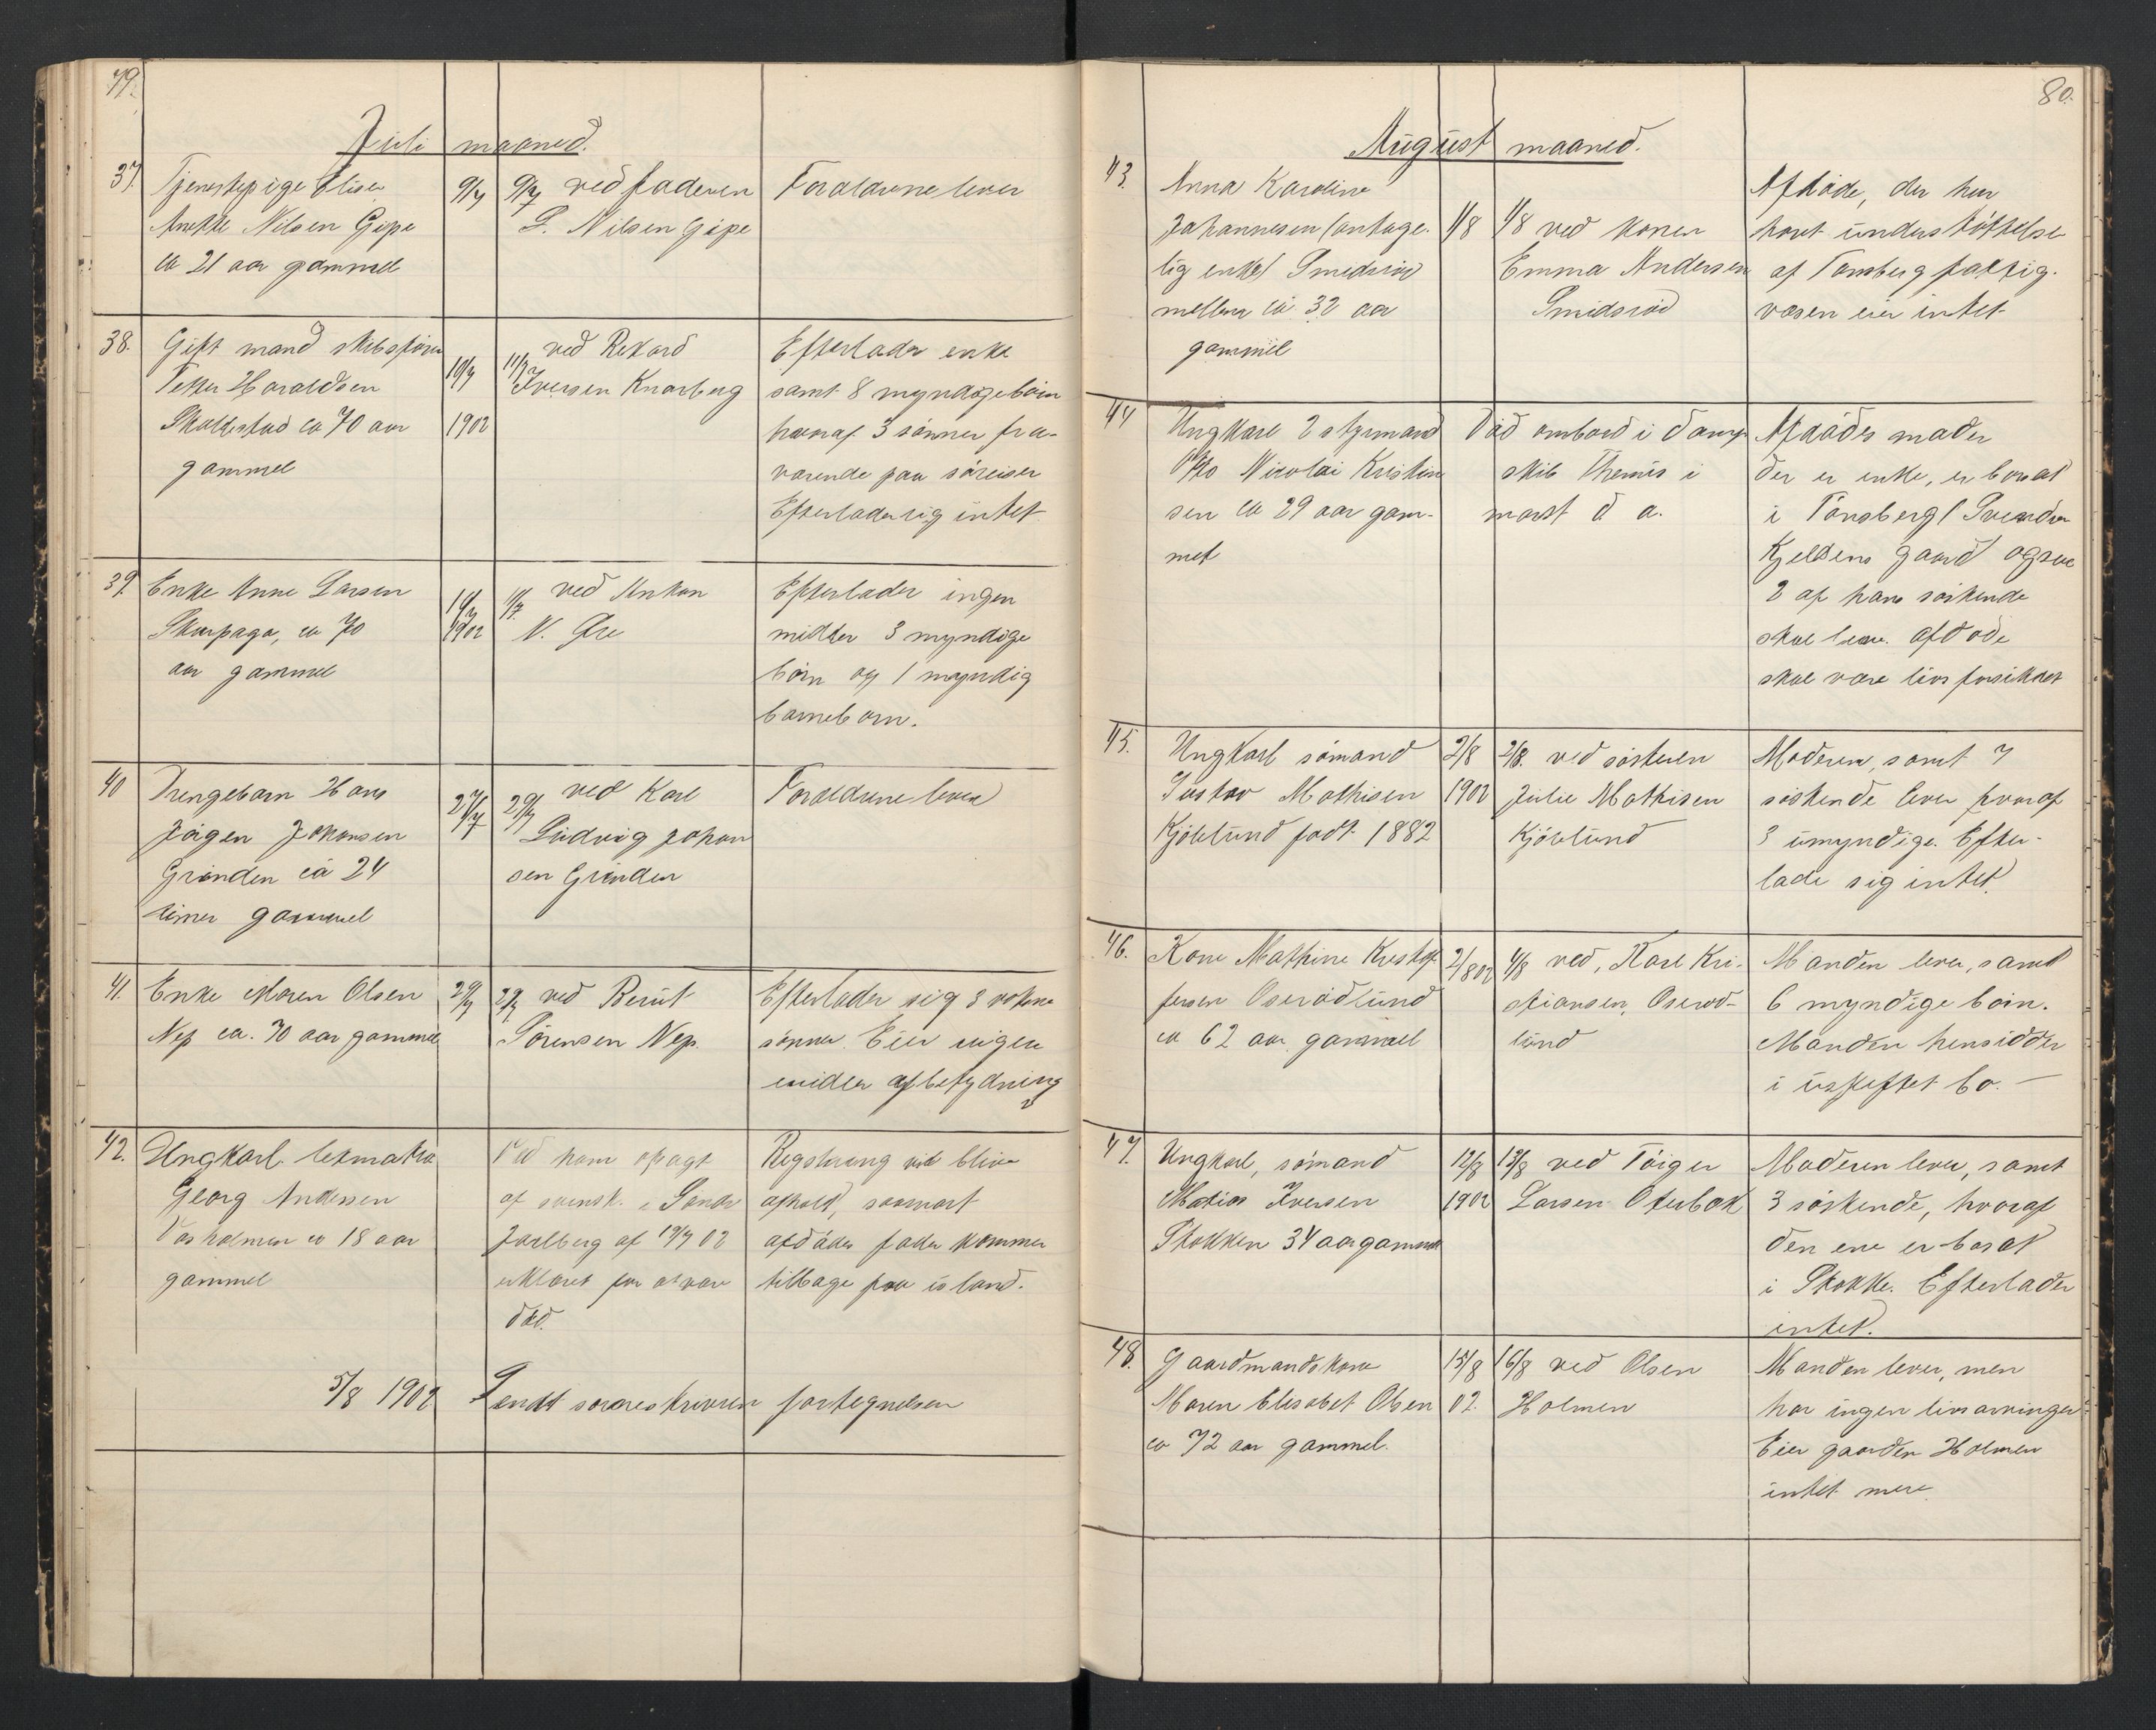 79.
Juli maaned.
37. Tjenestepige Elise 9/7 9/7 ved faderen Foraldrene lever
Anette Nilsen Gipø L. Nilsen Gipø
ca 21 aar gammel
38. Gift mand skibsfører 10/7 11/7 ved Rikard Efterlader enke
Petter Haraldsen 1902 Iversen Knarberg samt 8 myndige børn
Skallestad ca 70 aar hvoraf 3 sønner fra-
gammel værende paa søreiser
Efterlader sig intet
39. Enke Anne Larsen 10/7 11/7 ved Enkem Efterlader ingen
ca 70 1902 N. midler 3 myndige
aar gammel børn og 1 myndig
barnebarn.
40 Drengebarn Hans 27/7 29/7 ved Karl Foraldrene lever
Jørgen Johansen Ludvig Johan
Grinden ca 24 sen Grinden
timer gammel
41. Enke Maren Olsen 29/7 29/7 ved Bernt Efterlader sig 3 voksne
Nes ca. 70 aar gammel Sørensen Nes. sønner. Eier ingen
midler af betydning
42. Ungkarl letmatros Ved ham opagt Registrering vil blive
Georg Andersen af sorensk. i Søndre afholdt, saasnart
Vasholmen ca 18 aar Jarlberg af 19/7 02 afdødes fader kommer
gammel erklæret for at være tilbage fra island.
død.
5/8 1902 Sendt sorenskriveren fortegnelsen
80.
August maaned.
43. Anna Karoline Afdøde, der har
Johannesen (antage- 1/8 1/8 ved konen havt understøttelse
lig enke) Smidsrød Emma Andersen af Tønsberg fattig-
mellem ca 32 aar Smidsrød væsen eier intet
gammel
44 Ungkarl 2 styrmand Død ombord i damp Afdødes moder
Otto Nicolai Kristian skib Themis i der er enke, er bosat
sen ca 29 aar gam- marst d. a. i Tønsberg (Svend
mel Kjeldsens gaard) ogsaa
2 af hans søskende
skal leve. afdøde
skal være livsforsikret
45. Ungkarl sømand 2/8 2/8. ved søsteren Moderen, samt 7
Gustav Mathisen 1902 Julie Mathisen søskende lever hvoraf
Kjølelund født 1882 Kjølelund 3 umyndige. Efter-
lade sig intet.
46. Kone Mathine Kristof- 2/8 02 4/8 ved, Karl Kri- Manden lever, samt
fersen Oserødlund stiansen, Oserød- 6 myndige børn.
ca 62 aar gammel lund Manden hensidder
i uskiftet bo. —
47. Ungkarl, sømand 12/8 13/8 ved Tørger Moderen lever, samt
Matias Iversen 1902 Larsen Oterbæk 3 søskende, hvoraf
Stokken 34 aar gammel den ene er bosat
i Stokke. Efterlader
intet.
48. Gaardmandskone 15/8 16/8 ved Olsen Manden lever, men
Maren Elisabet Olsen 02. Holmen har ingen livsarvinger
ca 72 aar gammel. Eier gaarden Holmen
intet mere